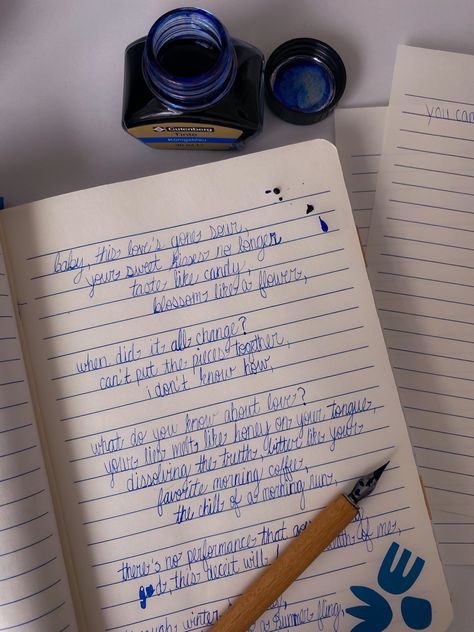 Gutenberg
Tinte
Königsblau
you can
baby, this love's gone sour,
your sweet kisses no longer
taste like candy,
blossom like a flower,
when did it all change?
can't put the pieces together,
i don't know how,
what do you know about love?
your lies melt like honey on your tongue,
dissolving the truth, bitter like your
favorite morning coffee,
the chill of a morning run,
there's no performance that
this deceit will of me,
winter
a summer fling,